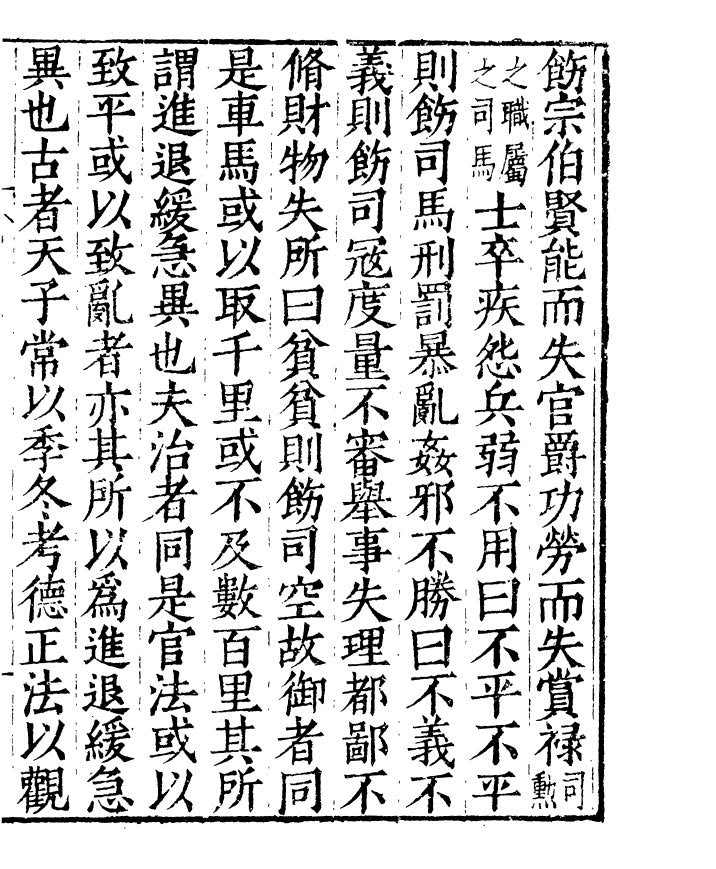 飭宗伯賢能而失官爵功勞而失賞祿司勲
之職屬之司馬士卒疾怨兵弱不用曰不平不平
則飭司馬刑罰暴亂姦邪不勝曰不義不
義則飭司冦度量不審舉事失理都鄙不
脩財物失所曰貧貧則飭司空故御者同
是車馬或以取千里或不及數百里其所
謂進退緩急異也夫治者同是官法或以
致平或以致亂者亦其所以為進退緩急
異也古者天子常以季冬考德正法以觀